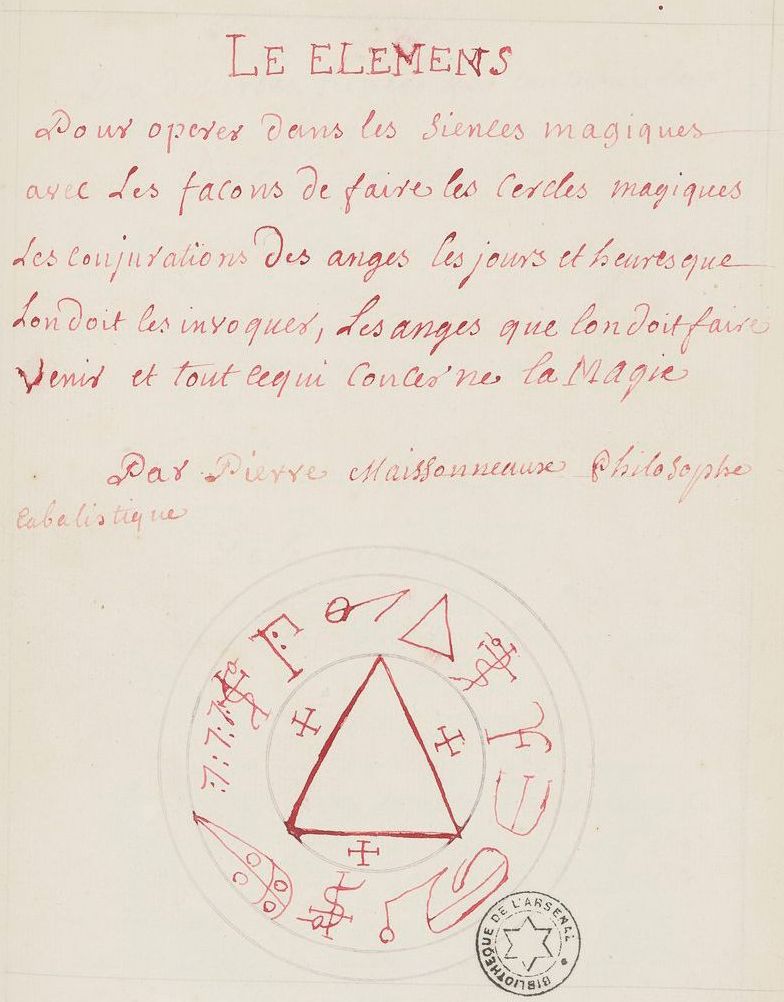 LE ELEMENS
Pour operer dans les siences magiques
avec Les facons de faire les cercles magiques
Les conjurations Des anges les jours et heures que
Lon doit les invoquer, Les anges que lon doit faire
Venir et tout ce qui concerne la Magie
Par Pierre Maissonneaux Philosophe
Cabalistique
BIBLIOTHEQUE DE L'ARSENAL